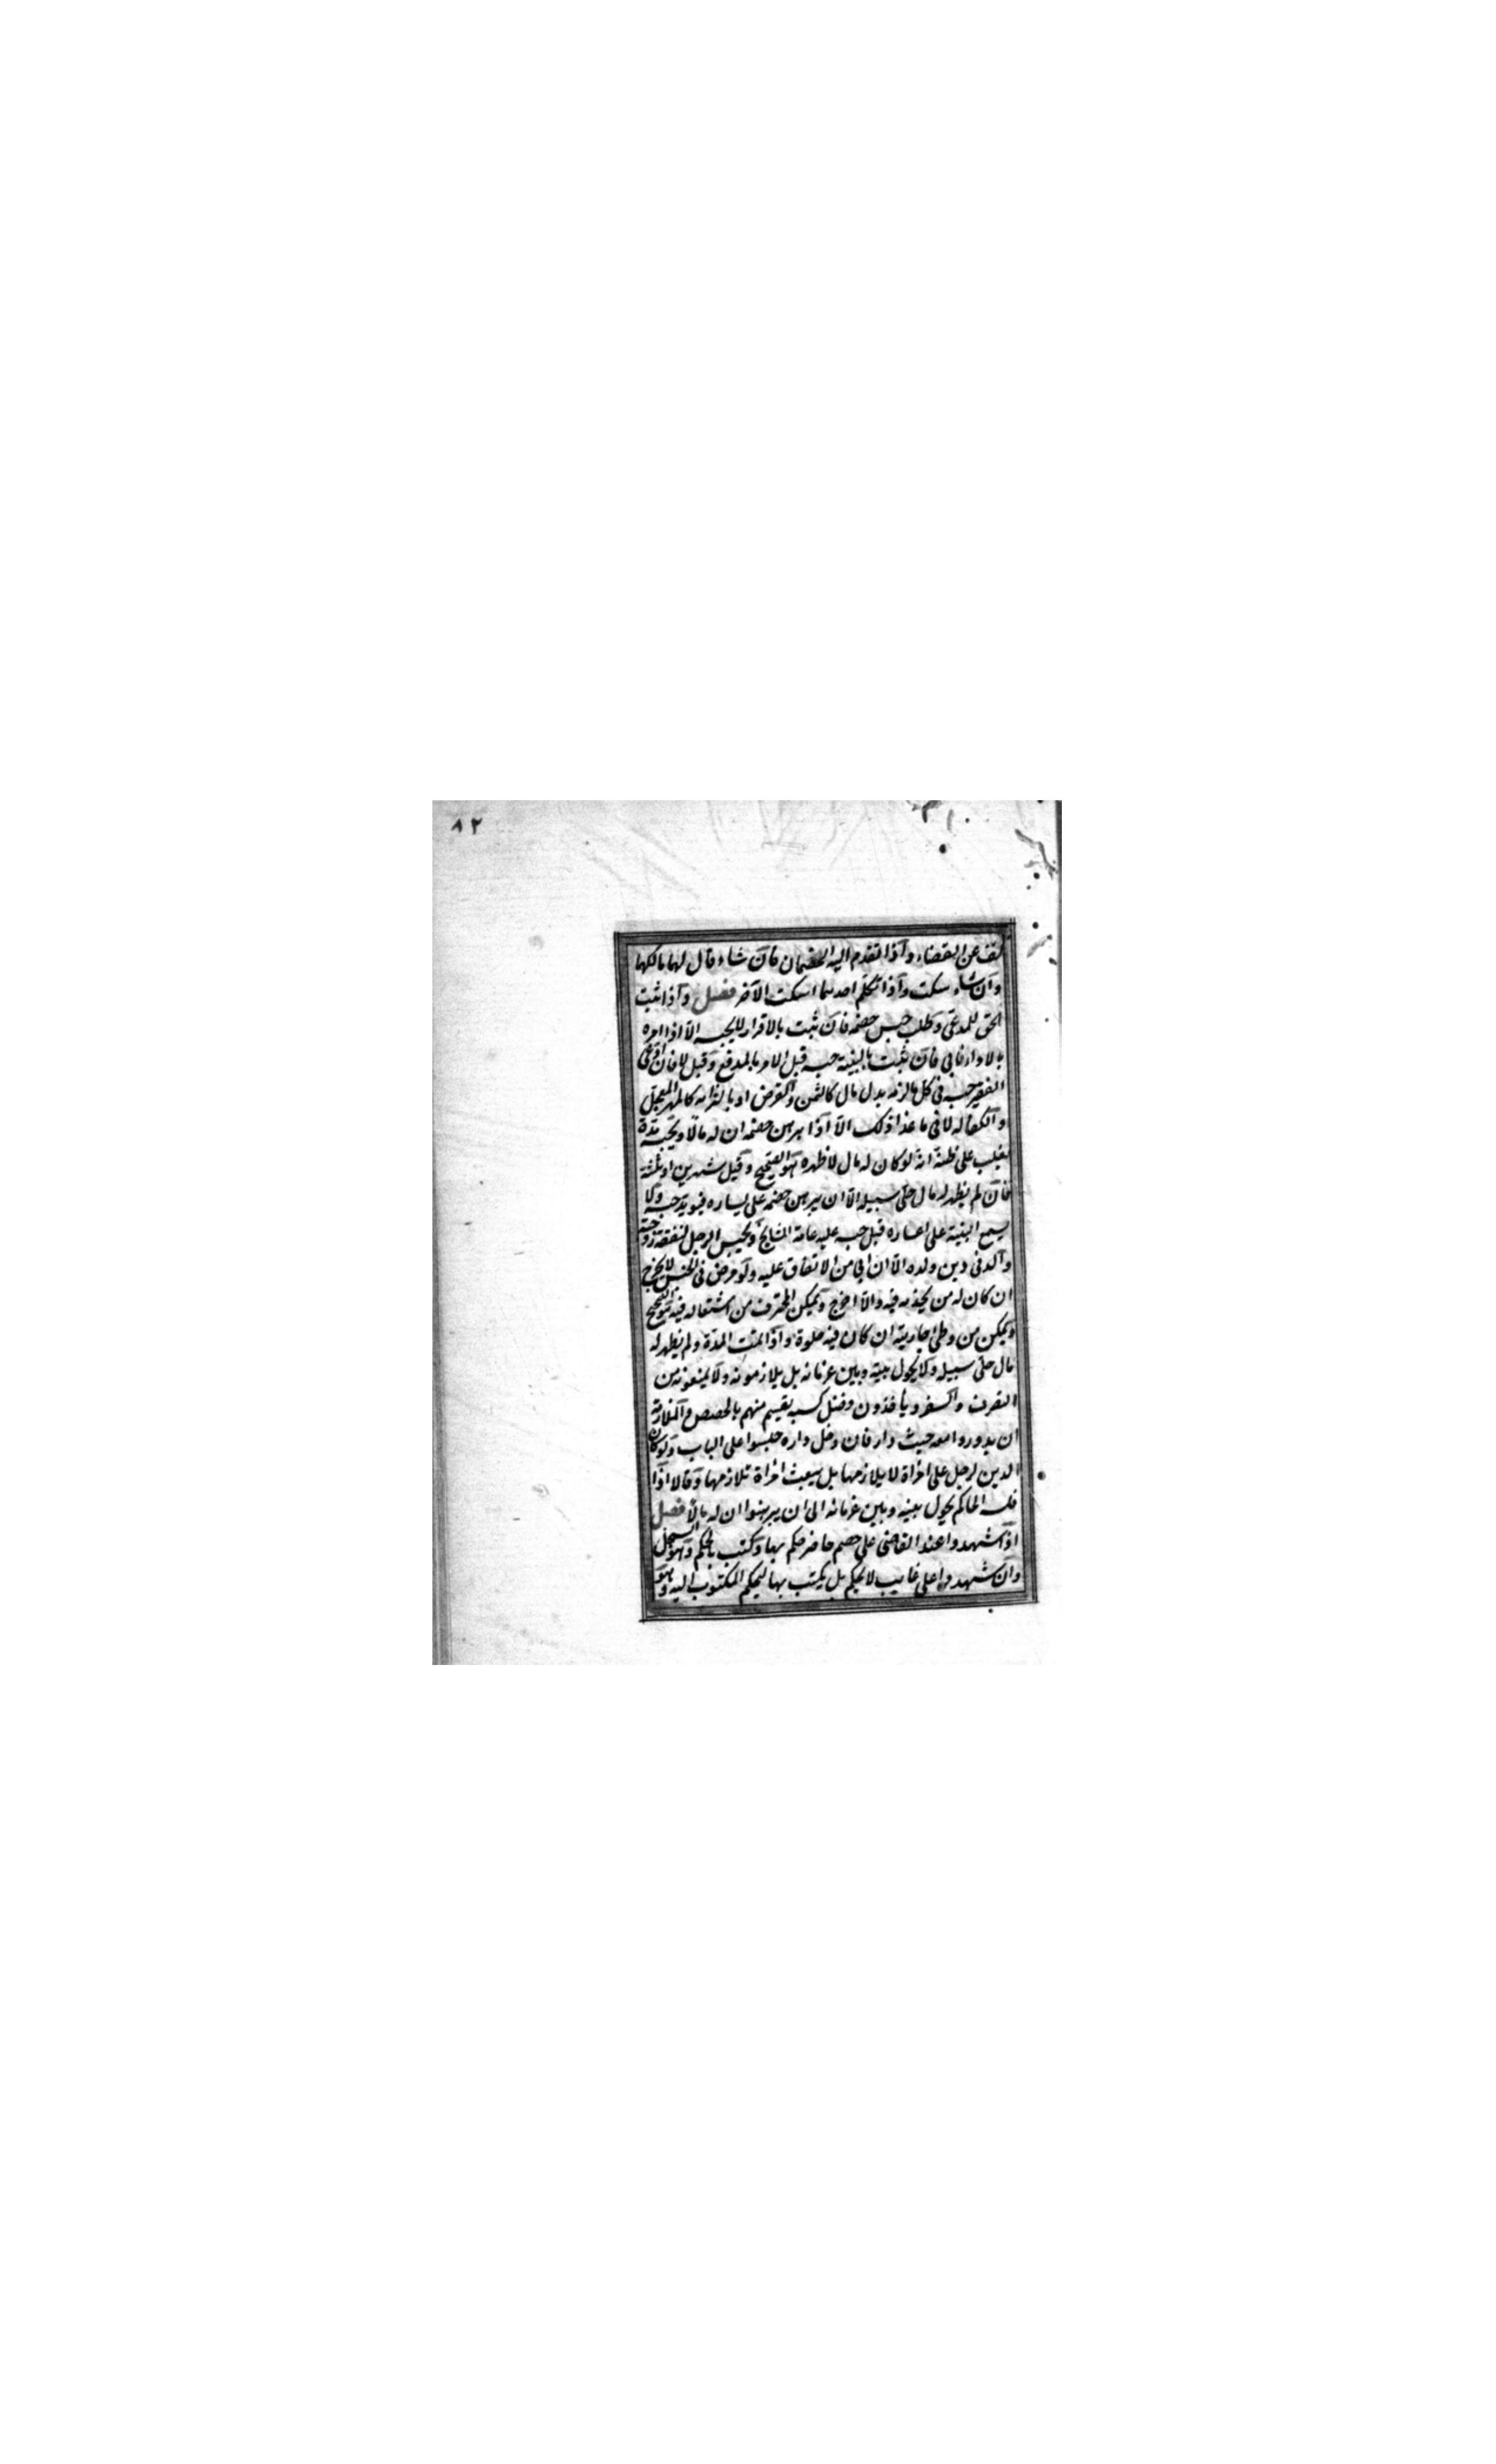 ٨٢
كف عن القضاء واذا تقدم اليه الخصمان فان شاء قال لهما مالكما
وان شاء سكت واذا تكلم احدهما اسكت الآخر فصل واذا ثبت
الحق للمدعى وطلب حبس خصمه فان ثبت بالاقرار لا يحبسه الا اذا امره
بالاداء فابى فان ثبت بالبينة حبسه قبل الامر بالدفع وقيل لا فان ادعى
الفقر حبسه فى كل ما لزمه بدل مال كالثمن والقرض او بالتزامه كالمهر المعجل
والكفالة لا فى ما عدا ذلك الا اذا برهن خصمه ان له مالا ويحبسه مدة
يغلب على ظنه انه لو كان له مال لاظهره هو الصحيح وقيل شهرين او ثلثة
فان لم يظهر له مال خلى سبيله الا ان يبرهن خصمه على يساره فيؤبد حبسه ولا
يسمع البينة على اعساره قبل حبسه عليه عامة المشايخ ويحبس الرجل لنفقة زوجته
والد فى دين ولده الا ان ابى من الانفاق عليه ولو مرض فى الحبس لا يخرج
ان كان له من يخدمه فيه والا اخرج ويمكن المحترف من اشتغاله فيه هو الصحيح
ويمكن من وطئ جاريته ان كان فيه خلوة واذا تمت المدة ولم يظهر له
مال خلى سبيله ولا يحول بينه وبين غرمائه بل يلازمونه ولا يمنعونه من
التصرف والسفر ويأخذون فضل كسبه يقسم بينهم بالحصص والملازمة
ان يدوروا معه حيث دار فان دخل داره جلسوا على الباب ولو كان
الدين لرجل على امرأة لا يلازمها بل يبعث امرأة تلازمها وقالا اذا
فلسه الحاكم يحول بينه وبين غرمائه الى ان يبرهنوا ان له مالا فصل
اذا شهدوا عند القاضى على خصم حاضر حكم بها وكتب بالحكم وهو السجل
وان شهدوا على غايب لا يحكم بل يكتب بها ليحكم المكتوب اليه وهو